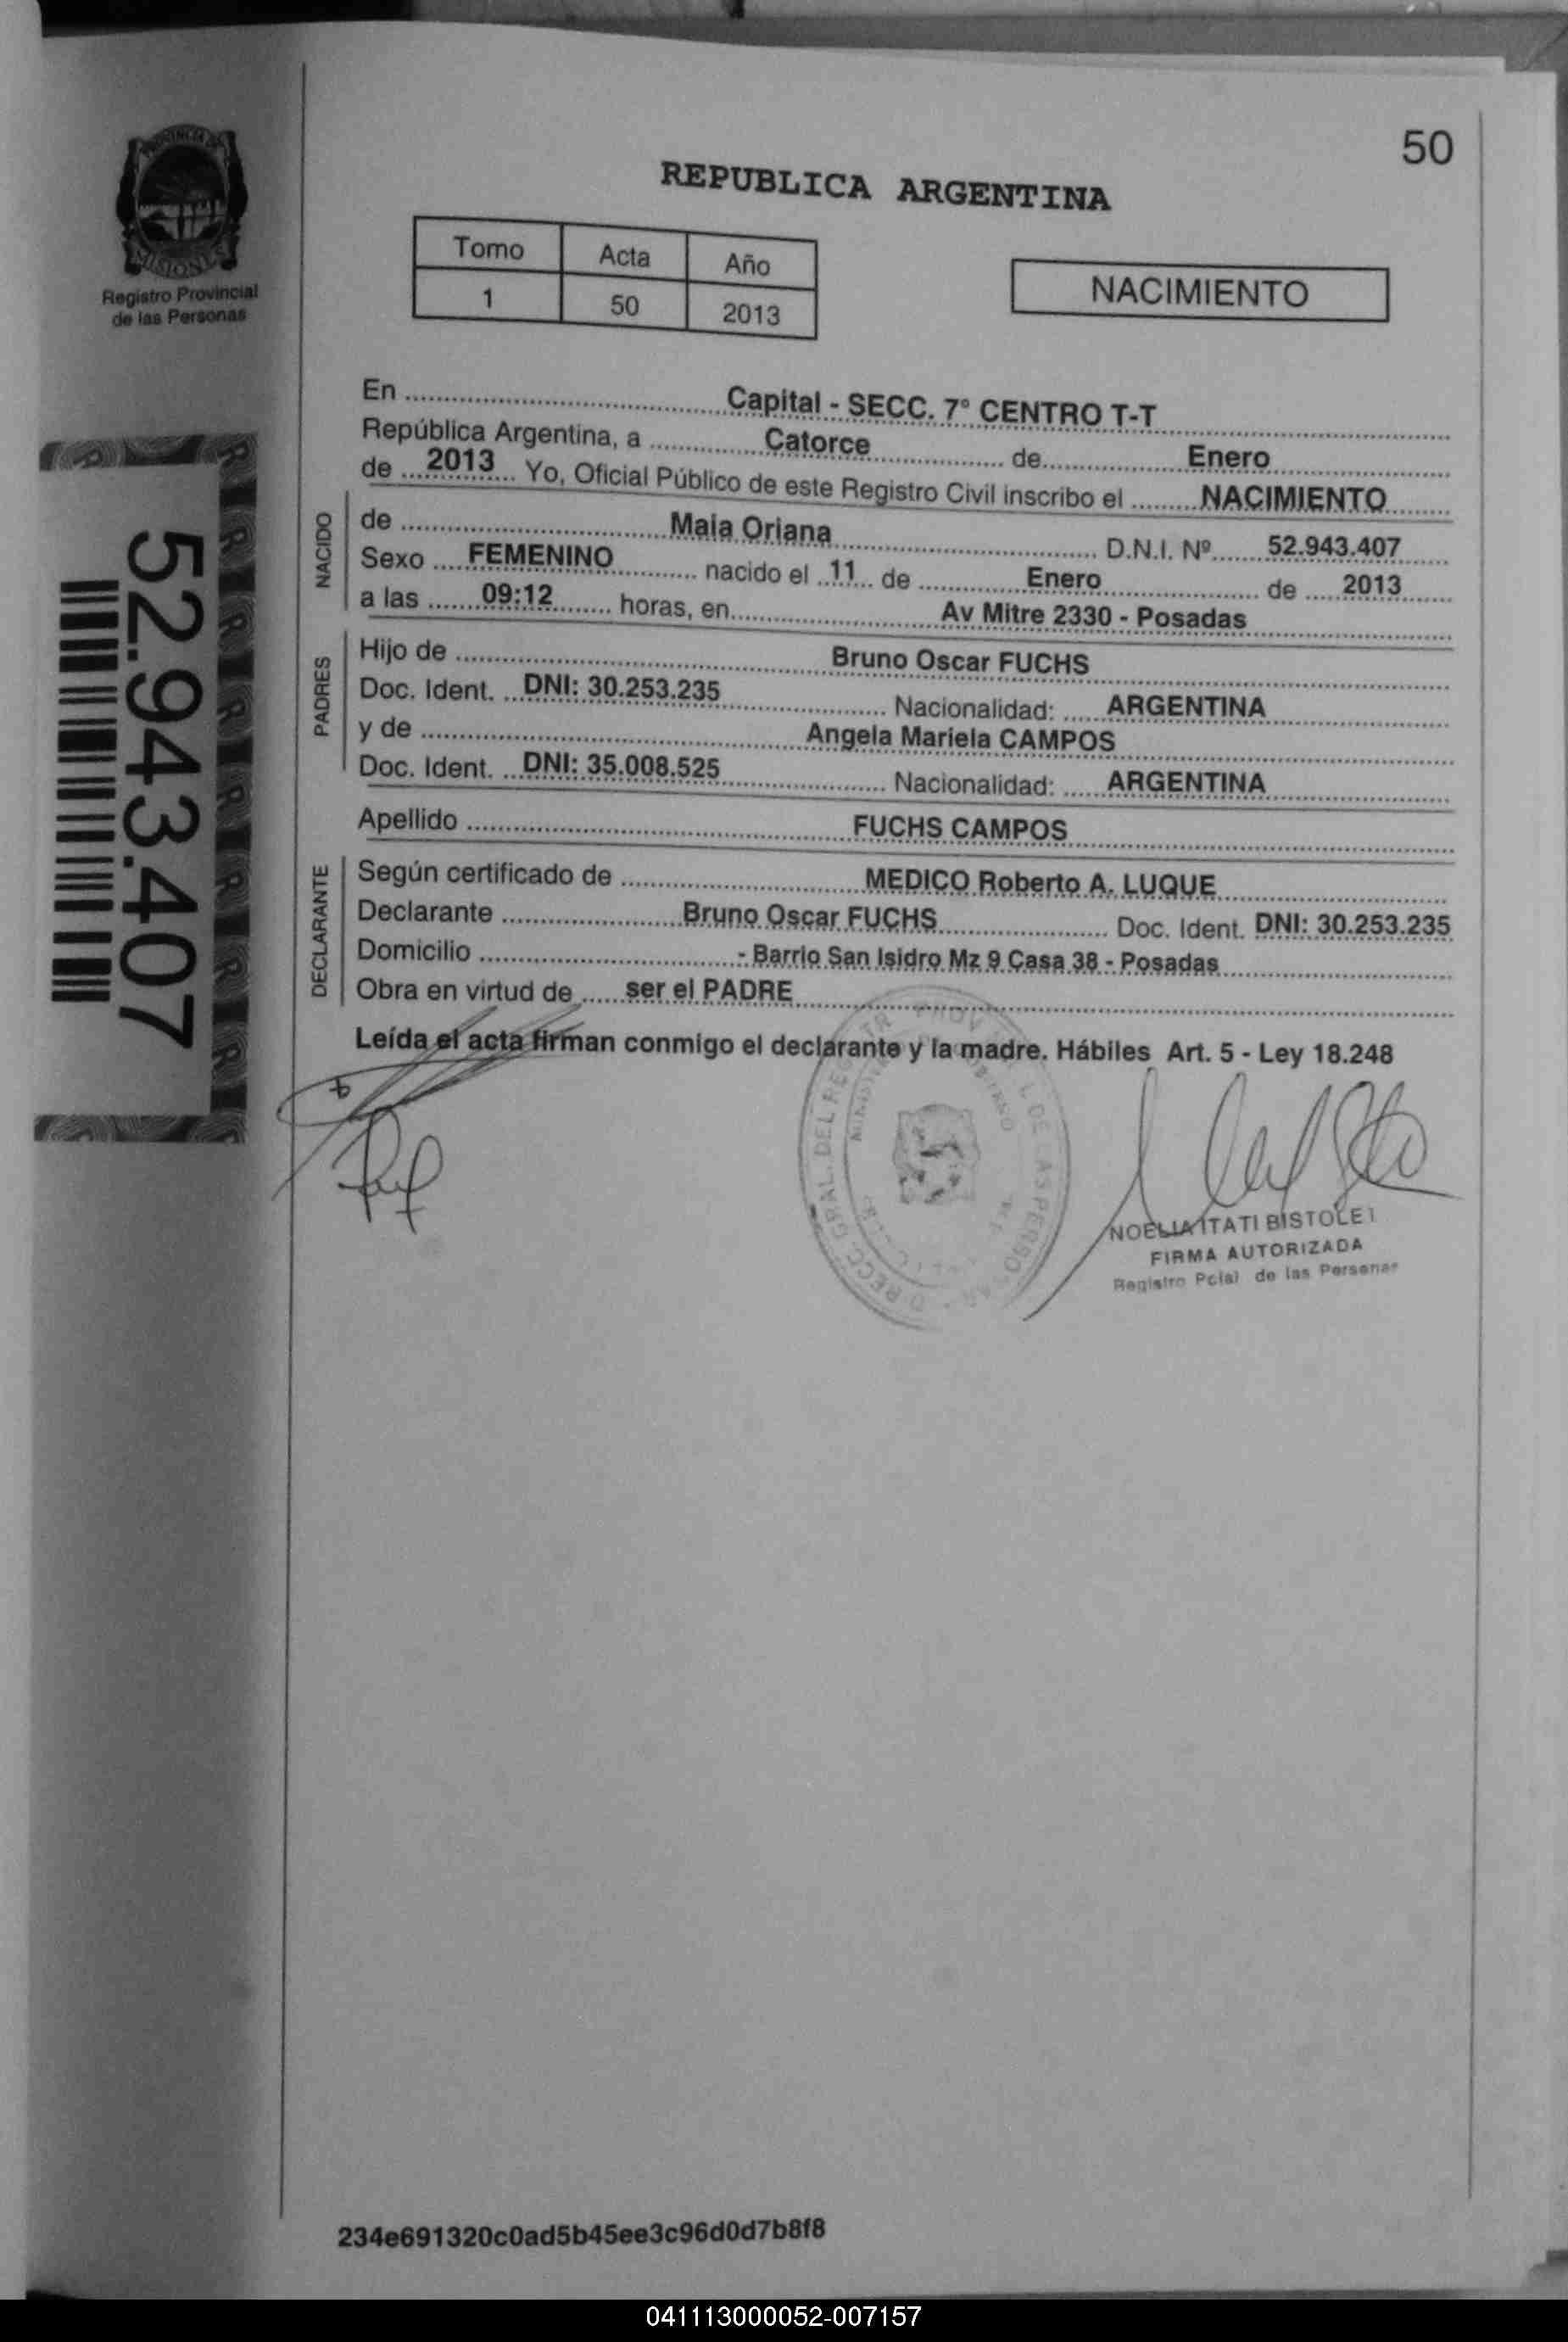 50
REPUBLICA ARGENTINA
PROVINCIA DE
MISIONES
Registro Provincial
de las Personas
Tomo Acta Año
1 50 2013
NACIMIENTO
52.943.407
En ........ Capital - SECC. 7° CENTRO T-T
República Argentina, a ........ Catorce ........ de ........ Enero
de ... 2013 ... Yo, Oficial Público de este Registro Civil inscribo el ........ NACIMIENTO
NACIDO
de ........ Maia Oriana ........ D.N.I. Nº ........ 52.943.407
Sexo .... FEMENINO ........ nacido el .. 11 .. de ........ Enero ........ de ..... 2013
a las ....... 09:12 ....... horas, en ........ Av Mitre 2330 - Posadas
PADRES
Hijo de ........ Bruno Oscar FUCHS
Doc. Ident. ... DNI: 30.253.235 ........ Nacionalidad: ...... ARGENTINA
y de ........ Angela Mariela CAMPOS
Doc. Ident. ... DNI: 35.008.525 ........ Nacionalidad: ...... ARGENTINA
Apellido ........ FUCHS CAMPOS
DECLARANTE
Según certificado de ........ MEDICO Roberto A. LUQUE
Declarante ........ Bruno Oscar FUCHS ........ Doc. Ident. DNI: 30.253.235
Domicilio ........ - Barrio San Isidro Mz 9 Casa 38 - Posadas
Obra en virtud de ...... ser el PADRE
Leída el acta firman conmigo el declarante y la madre. Hábiles Art. 5 - Ley 18.248
NOELIA ITATI BISTOLEI
FIRMA AUTORIZADA
Registro Pcial de las Personas
234e691320c0ad5b45ee3c96d0d7b8f8
041113000052-007157